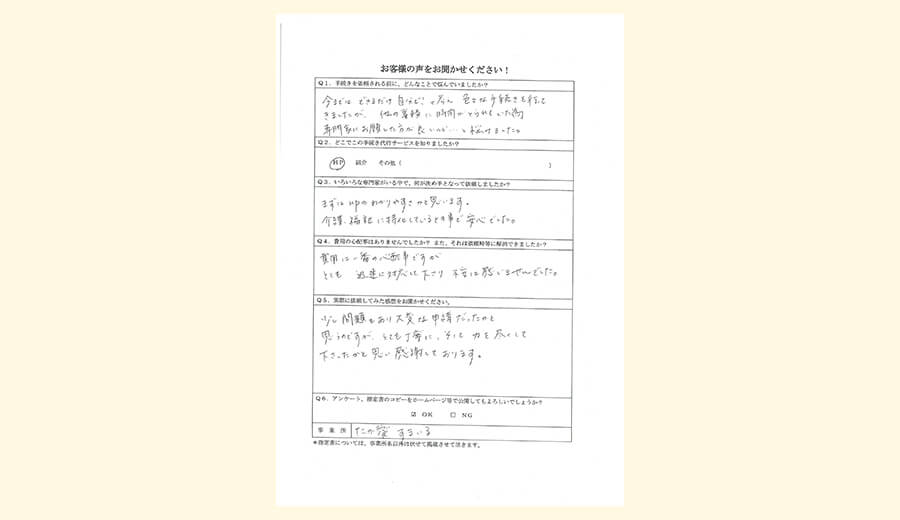 お客様の声をお聞かせください！
Q１．手続きを依頼される前に、どんなことで悩んでいましたか？
今までは できるだけ 自分で！と考え 色々な手続きを行って
きましたが、他の業務に時間がとられていた為
専門家にお願いした方が良いのか…と悩みました。
Q２．どこでこの手続き代行サービスを知りましたか？
HP 紹介 その他（ ）
Q３．いろいろな専門家がいる中で、何が決め手となって依頼しましたか？
まずはHPのわかりやすさかと思います。
介護、福祉に特化しているとの事で安心でした。
Q４．費用の心配事はありませんでしたか？また、それは依頼時等に解消できましたか？
費用は一番の心配事ですが
とても 迅速に対応して下さり 不安は感じませんでした。
Q５．実際に依頼してみた感想をお聞かせください。
少し問題もあり大変な申請だったかと
思うのですが、とても丁寧に、そして 力を尽くして
下さったかと思い感謝しております。
Q６．アンケート、指定書のコピーをホームページ等で公開してもよろしいでしょうか？
☑ OK ☐ NG
事業所 たか家 すまいる
＊指定書については、事業所名以外は伏せて掲載させて頂きます。